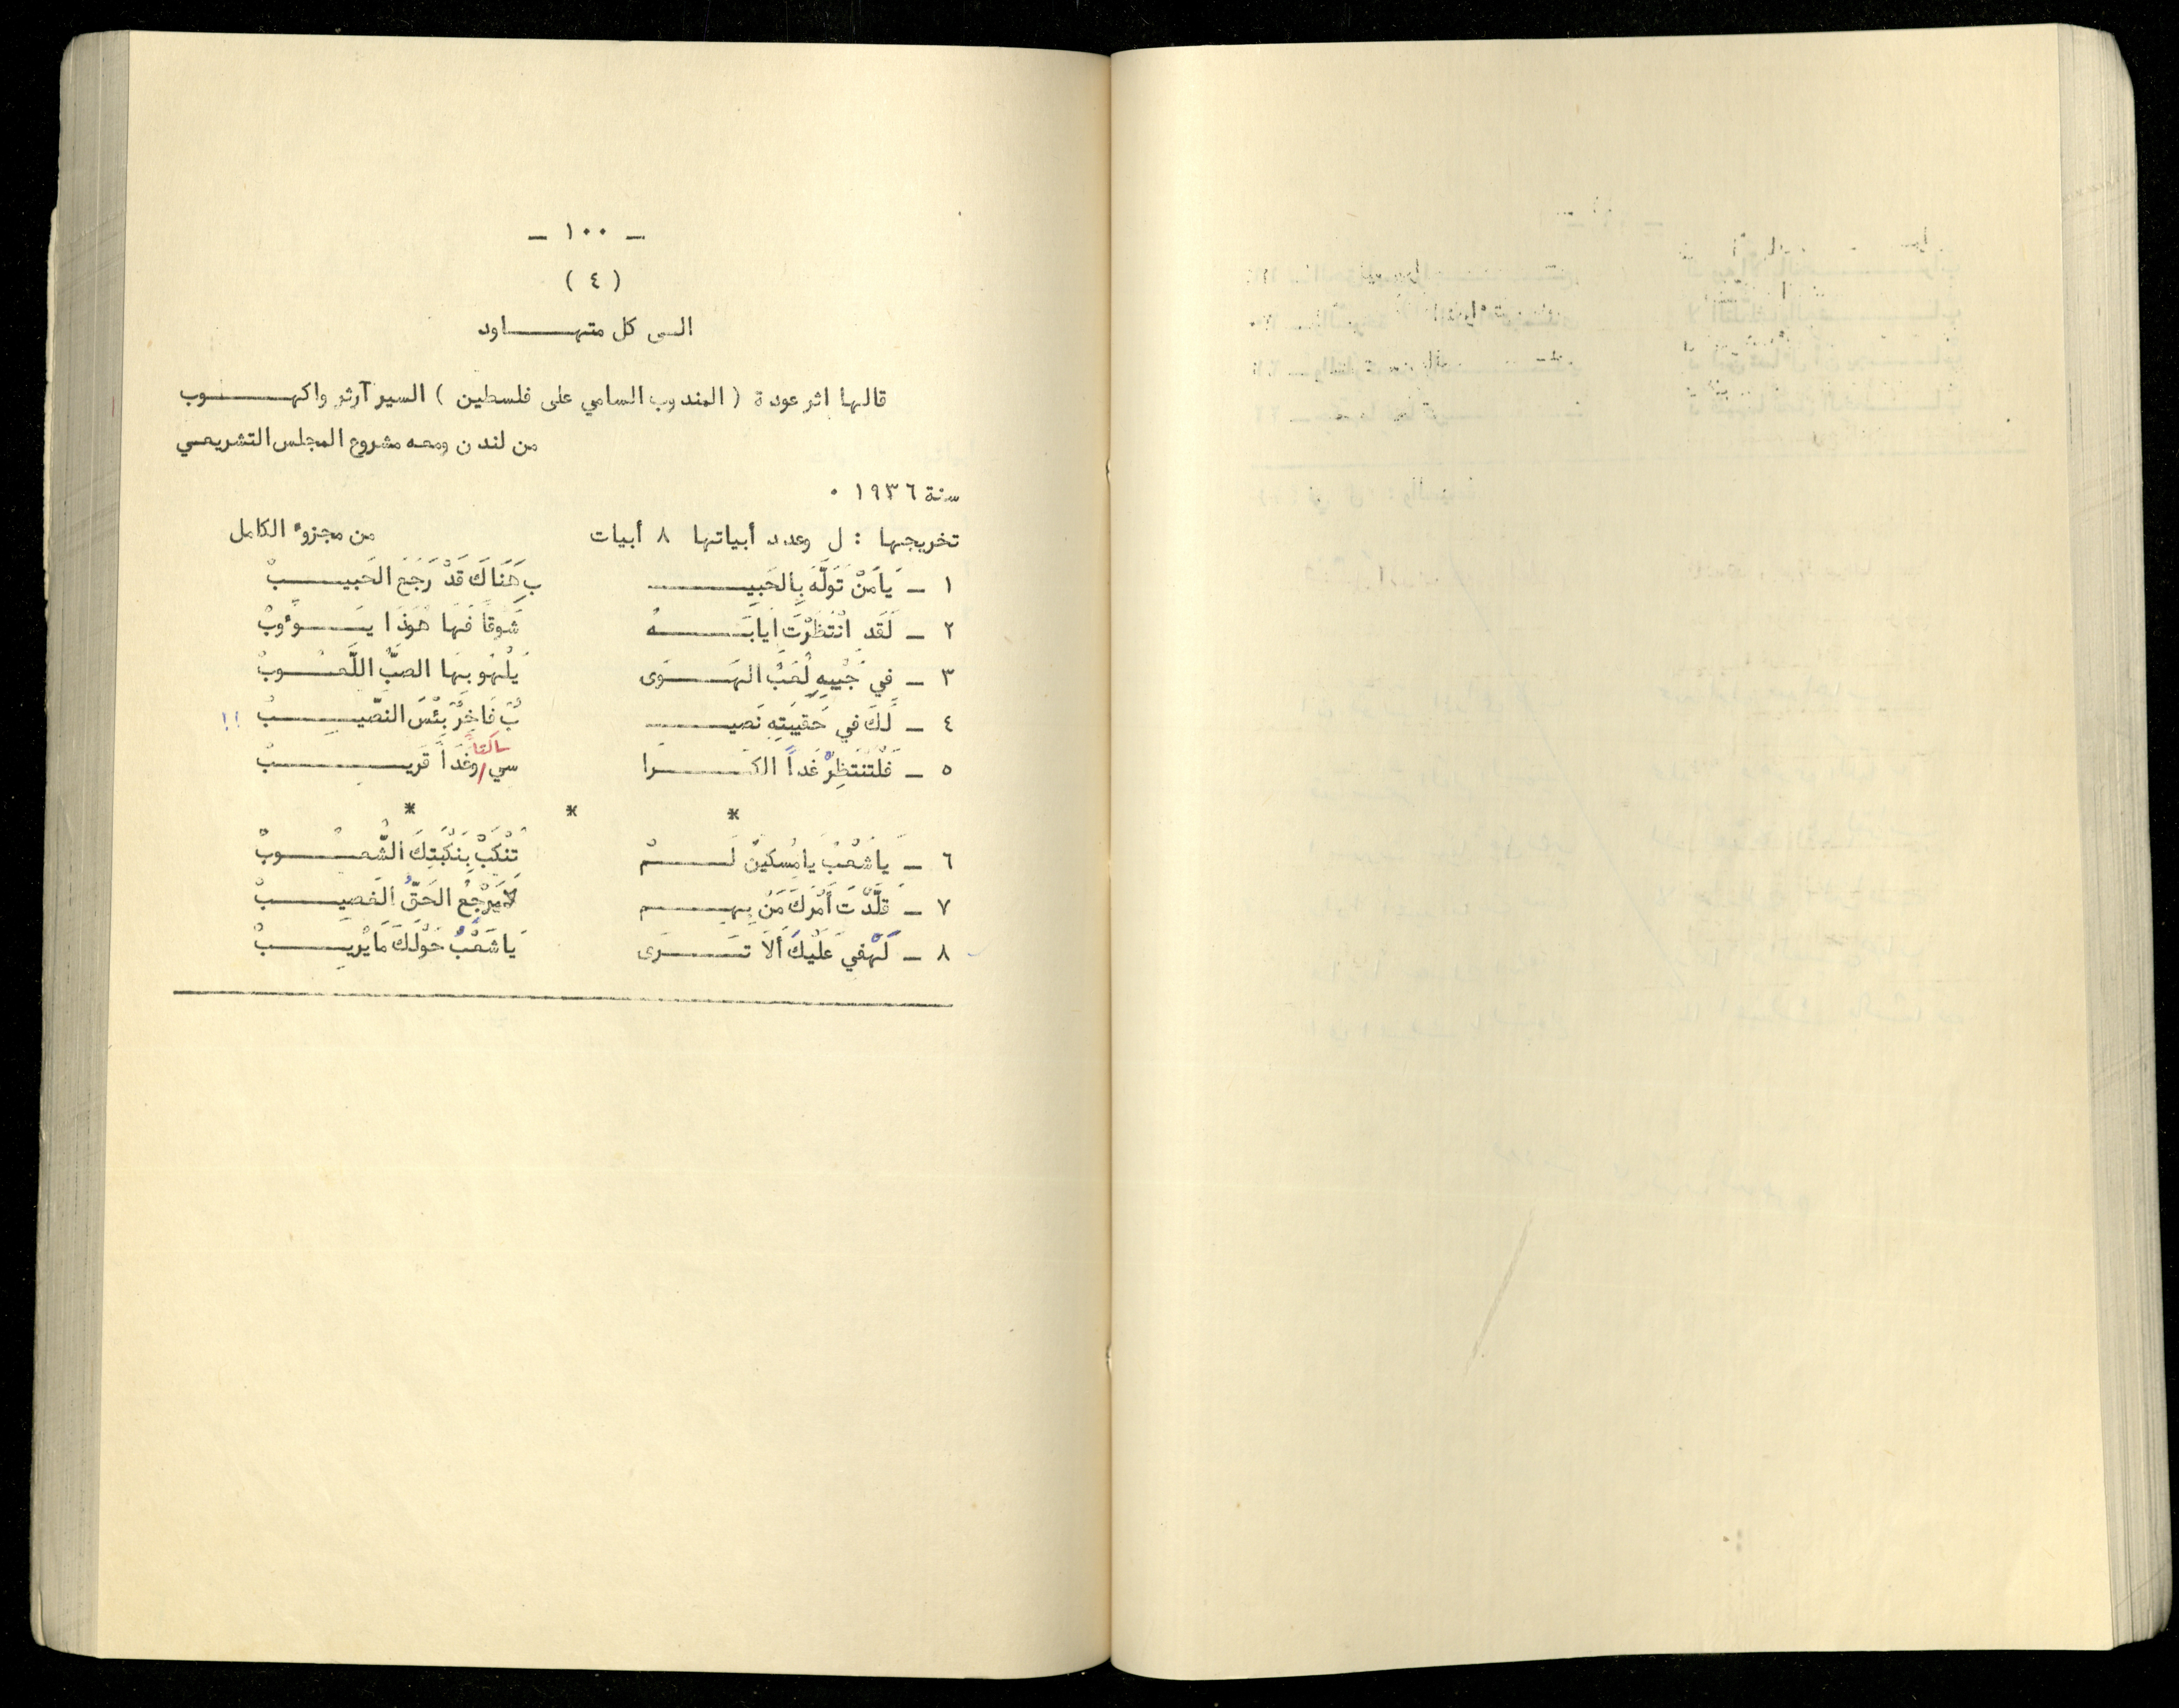 - ١٠٠ -
( ٤ )
الى كل متهاود
قالها اثر عودة ( المندوب السامي على فلسطين ) السير آرثر واكهوب
من لندن ومعه مشروع المجلس التشريعي
سنة ١٩٣٦ .
تخريجها : ل وعدد أبياتها ٨ أبيات من مجزوء الكامل
١ - يَا مَنْ تَوَلَّهَ بِالحَبِيـ بِ هَنَاكَ قَدْ رَجَعَ الحَبيبْ
٢ - لَقَدِ انْتَظَرْتَ اِيَابَهُ شَوقاً فَهَا هُوَذَا يَؤوبْ
٣ - في جَيْبِهِ لُعَبُ الهَوَى يَلْهُو بِهَا الصَبُّ اللَّعُوبْ
٤ - لَكَ في حَقيبَتِهِ نَصيـ بٌ فَاخِرٌ بِئْسَ النَصّيبْ !!
٥ - فَلْتَنْتَظِرْ غَداً الكَرا سي / وغَداً قَريبْ
ساكتاً
* * *
٦ - يَا شَعْبُ يا مِسْكينُ لَمْ تُنْكَبْ بِنَكْبَتِكَ الشُّعُوبْ
٧ - قَلَّدْتَ أَمْرَكَ مَنْ بِهِم لا يَرْجِعُ الحَقُّ الغَصِيبْ
٨ - لَهْفي عَلَيْكَ أَلاَ تَرَى يَا شَعْبُ حَوْلَكَ مَا يُرِيبْ